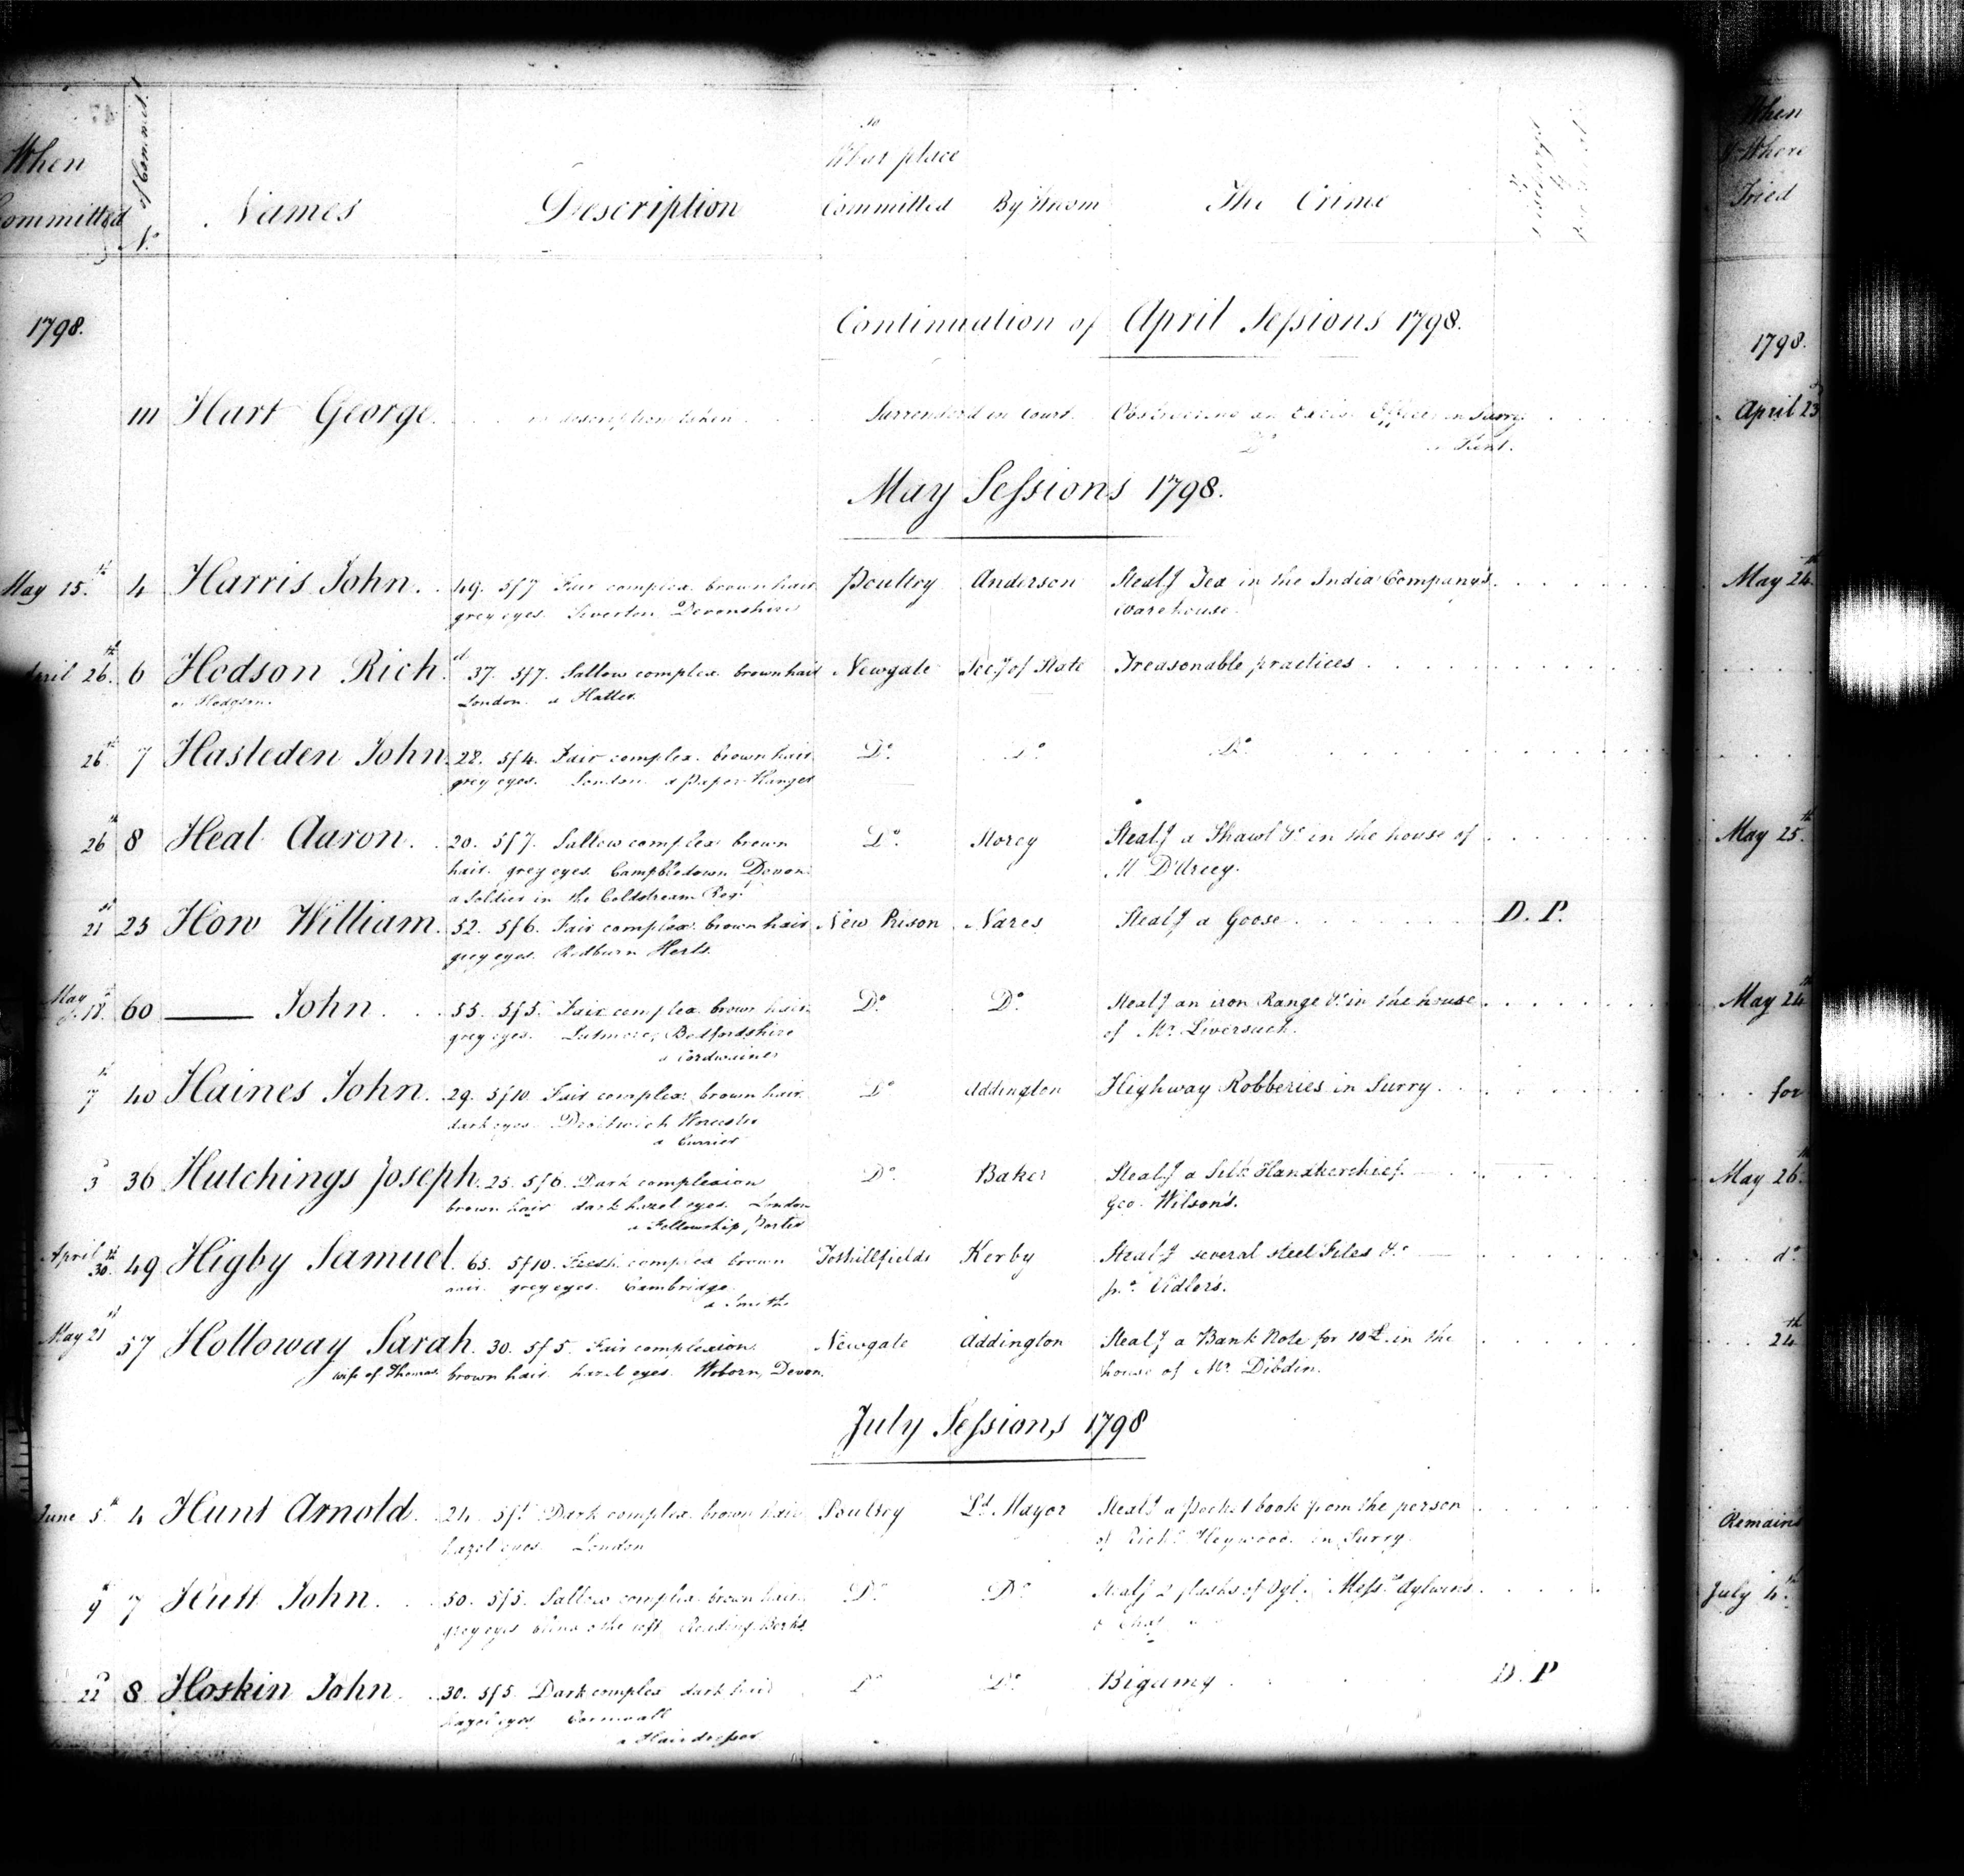 When Committed
No. of Commit.t
Names
Description
To What place Committed
By Whom
The Crime
When & Where Tried
1798.
Continuation of April Sessions 1798.
1798.
111 Hart George. no description taken Surrenderd in Court. Obstructing an Excise Officer in Surry April 23d
Do in Kent.
May Sessions 1798.
May 15.th 4 Harris John. 49. 5f7 Fair complex. brown hair Poultry Anderson Stealg Tea in the India Company's May 24.th
grey eyes. Tiverton Devonshire warehouse.
April 26.th 6 Hodson Rich.d 37. 5f7. Sallow complex. brown hair Newgate Secy of State Treasonable practices
or Hodgson. London. a Hatter.
26.th 7 Hasleden John 22. 5f4. Fair complex. brown hair Do. Do. Do.
grey eyes. London. a Paper Hanger
26th 8 Heal Aaron. 20. 5f7. Sallow complex brown Do. Storey Stealg a Shawl &c in the house of May 25.th
hair. grey eyes. Devon. M D'Arcey.
a Soldier in the Coldstream Regt
21st 25 How William. 52. 5f6. Fair complex. brown hair New Prison Nares Stealg a Goose. D. P.
grey eyes. Redburn Herts.
May 18.th 60 —— John. 55. 5f5. Fair complex. brown hair Do. Do. Stealg an iron Range &c in the house May 24th
grey eyes. Bedfordshire of Mr. Liversuch.
a Cordwainer
7th 40 Haines John. 29. 5f10. Fair complex. brown hair Do Addington Highway Robberies in Surry. for
dark eyes. Droitwich Worcester
a Currier
3d 36 Hutchings Joseph. 25. 5f6. Dark complexion Do. Baker Stealg a Silk Handkerchief. May 26.th
brown hair dark hazel eyes. London Geo. Wilson's.
a Fellowship Porter
April 30.th 49 Higby Samuel. 65. 5f10. Fresh complex brown Tothillfields Kerby Stealg several steel Files &c do
hair. grey eyes. Cambridge. Vidler's.
a Smith
May 21st 57 Holloway Sarah. 30. 5f5. Fair complexion. Newgate Addington Stealg a Bank Note for 10£. in the 24th
wife of Thomas. brown hair. hazel eyes. Woborn, Devon. house of Mr. Dibdin.
July Sessions, 1798
June 5.th 4 Hunt Arnold. 24. Dark complex. brown hair Poultry Ld. Mayor Stealg a Pocket book from the person Remains
hazel eyes. London of Richd Heywood. in Surry.
9th 7 Hutt John. 50. 5f5. Sallow complex. brown hair. Do. Do. Stealg 2 flasks of Oyl. Messrs Aylwins July 4.th
grey eyes blind of the left. Reading Berks.
22d 8 Hoskin John. 30. 5f5. Dark complex dark hair Do Do. Bigamy D. P
hazel eyes. Cornwall
a Hairdresser